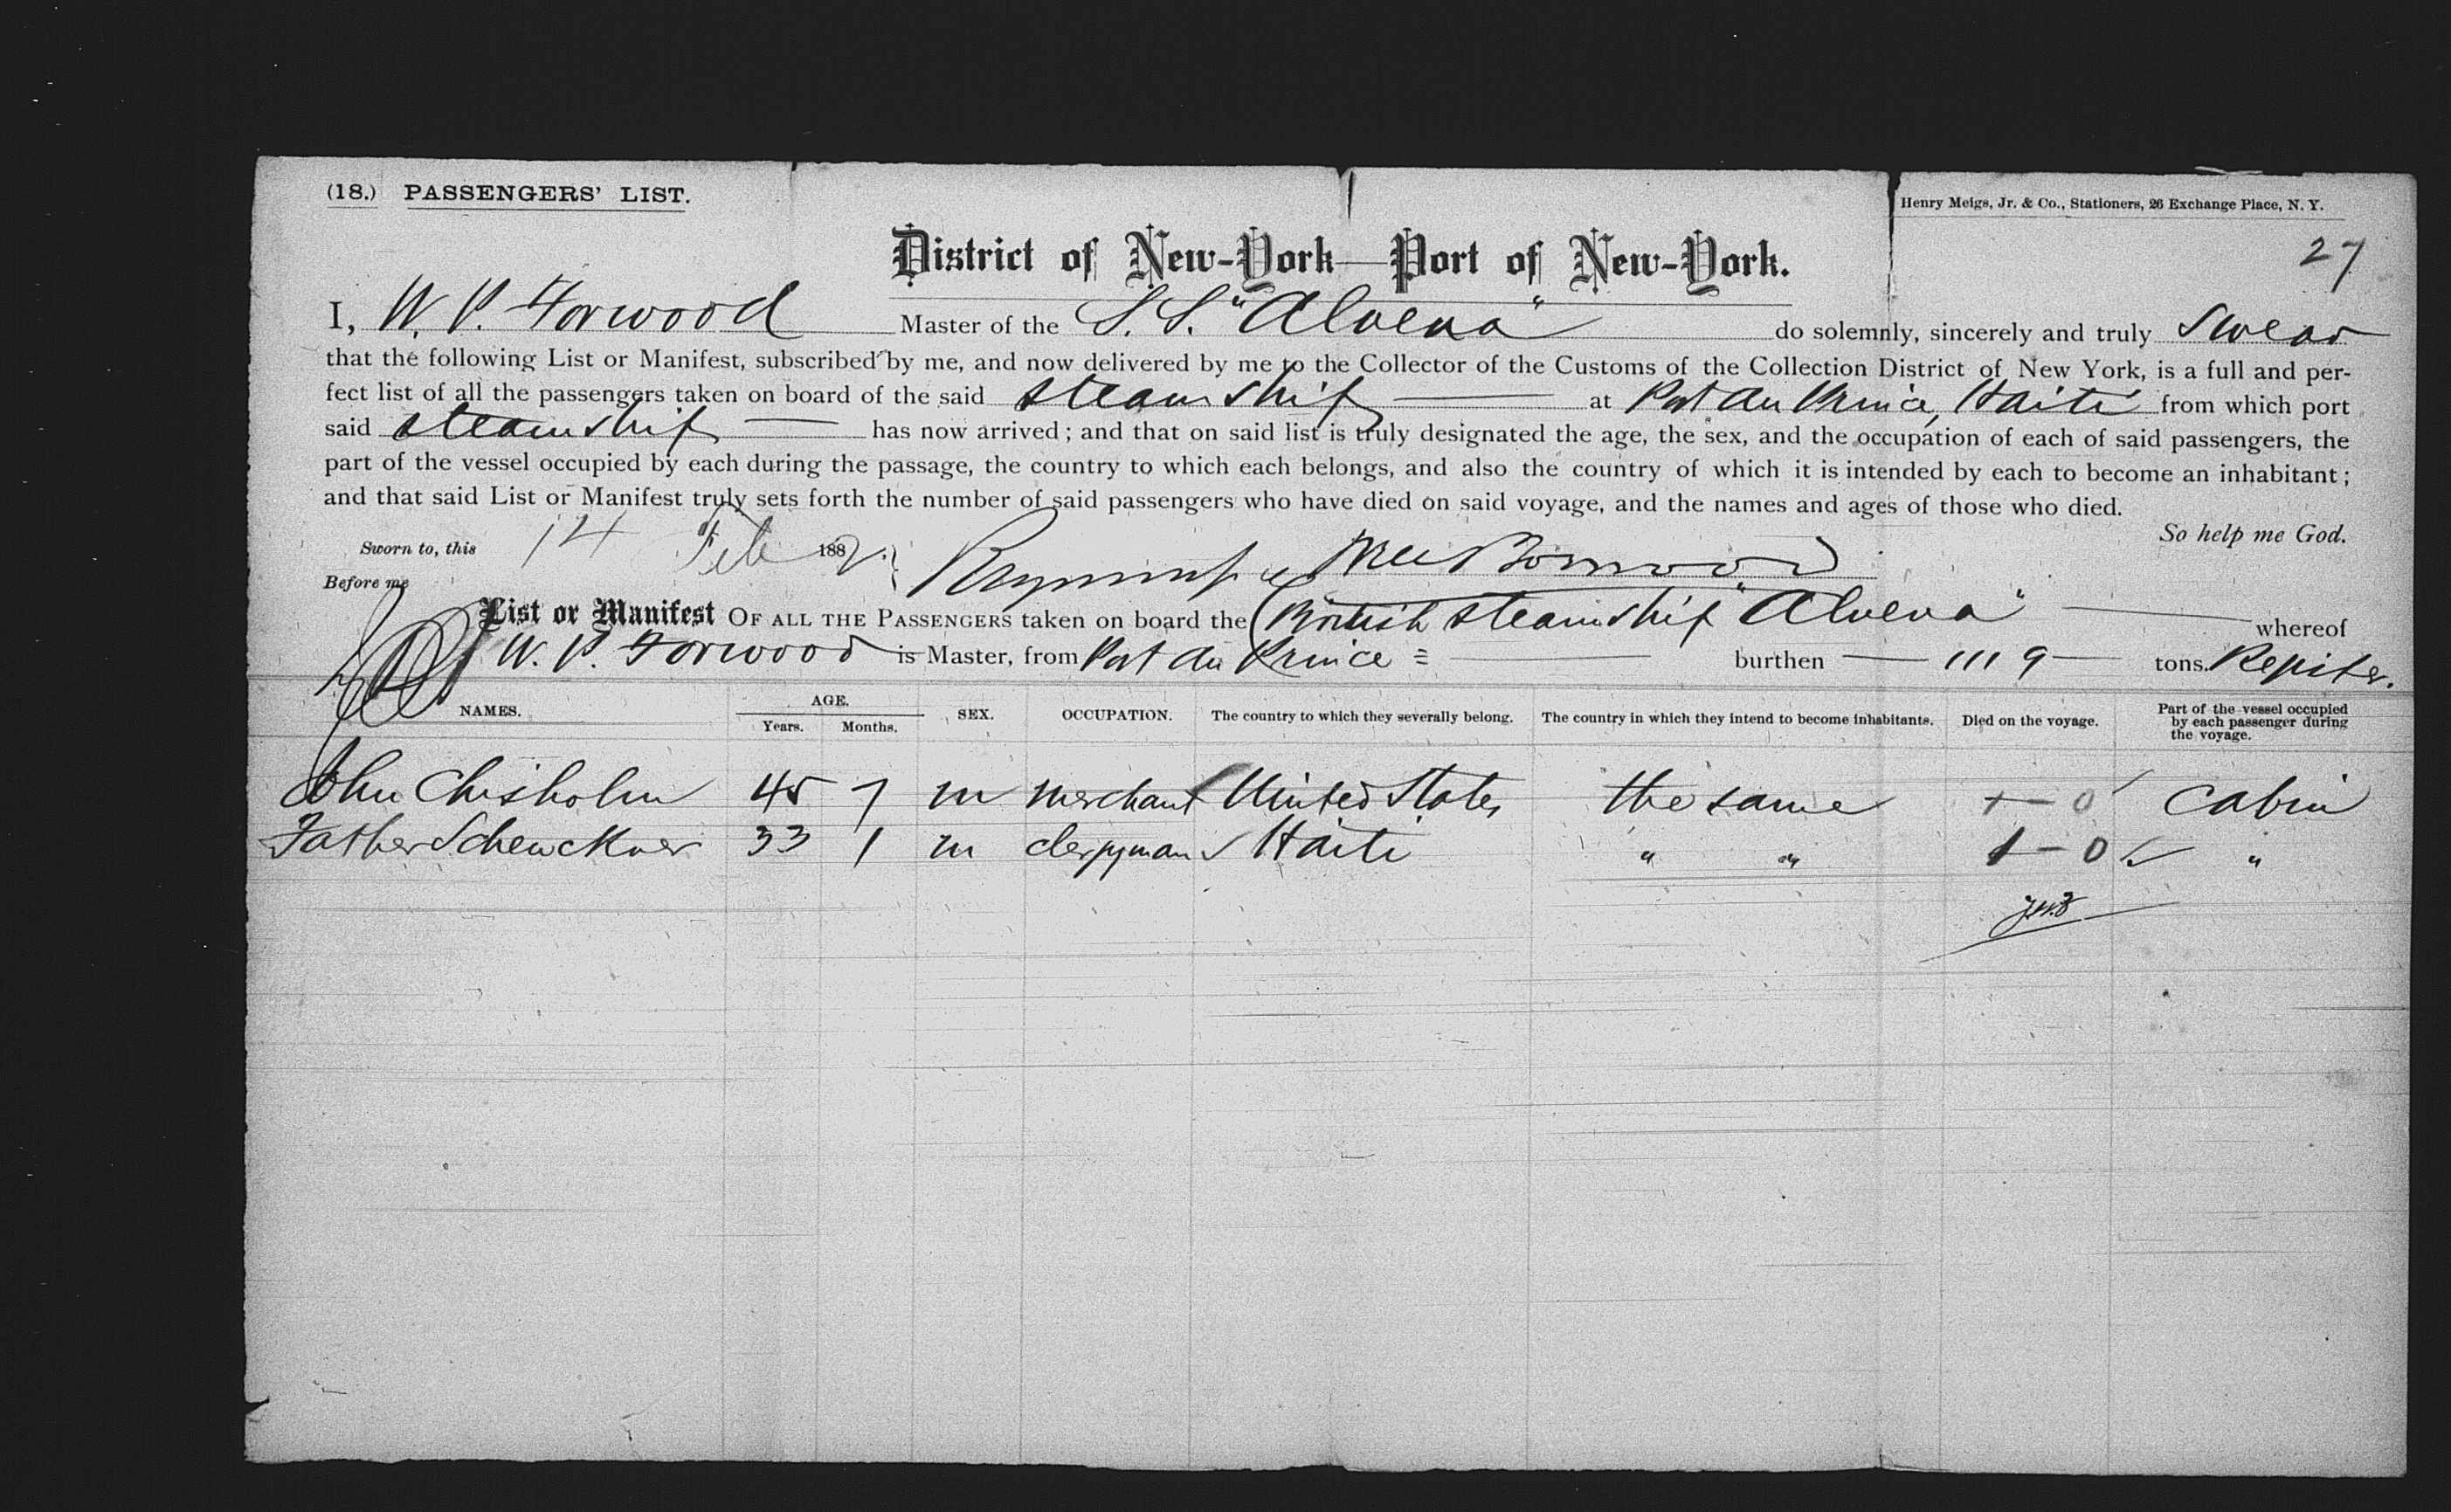 (18.) PASSENGERS' LIST.
Henry Meigs, Jr. & Co., Stationers, 26 Exchange Place, N. Y.
27
District of New-York—Port of New-York.
I, W. P. Forwood Master of the S.S. "Alvena" do solemnly, sincerely and truly swear
that the following List or Manifest, subscribed by me, and now delivered by me to the Collector of the Customs of the Collection District of New York, is a full and per-
fect list of all the passengers taken on board of the said steamship — at Port au Prince, Haiti from which port
said steamship — has now arrived; and that on said list is truly designated the age, the sex, and the occupation of each of said passengers, the
part of the vessel occupied by each during the passage, the country to which each belongs, and also the country of which it is intended by each to become an inhabitant;
and that said List or Manifest truly sets forth the number of said passengers who have died on said voyage, and the names and ages of those who died.
So help me God.
Sworn to, this 14 Feb 1882
Before me
List or Manifest OF ALL THE PASSENGERS taken on board the British steamship "Alvena" — whereof
W. P. Forwood is Master, from Port au Prince — burthen — 1119 — tons.
NAMES. AGE. Years. Months. SEX. OCCUPATION. The country to which they severally belong. The country in which they intend to become inhabitants. Died on the voyage. Part of the vessel occupied by each passenger during the voyage.
John Chisholm 45 7 m merchant United States the same 1—0 cabin
Father Schenckner 33 1 m clergyman Haiti " " 1—0 "